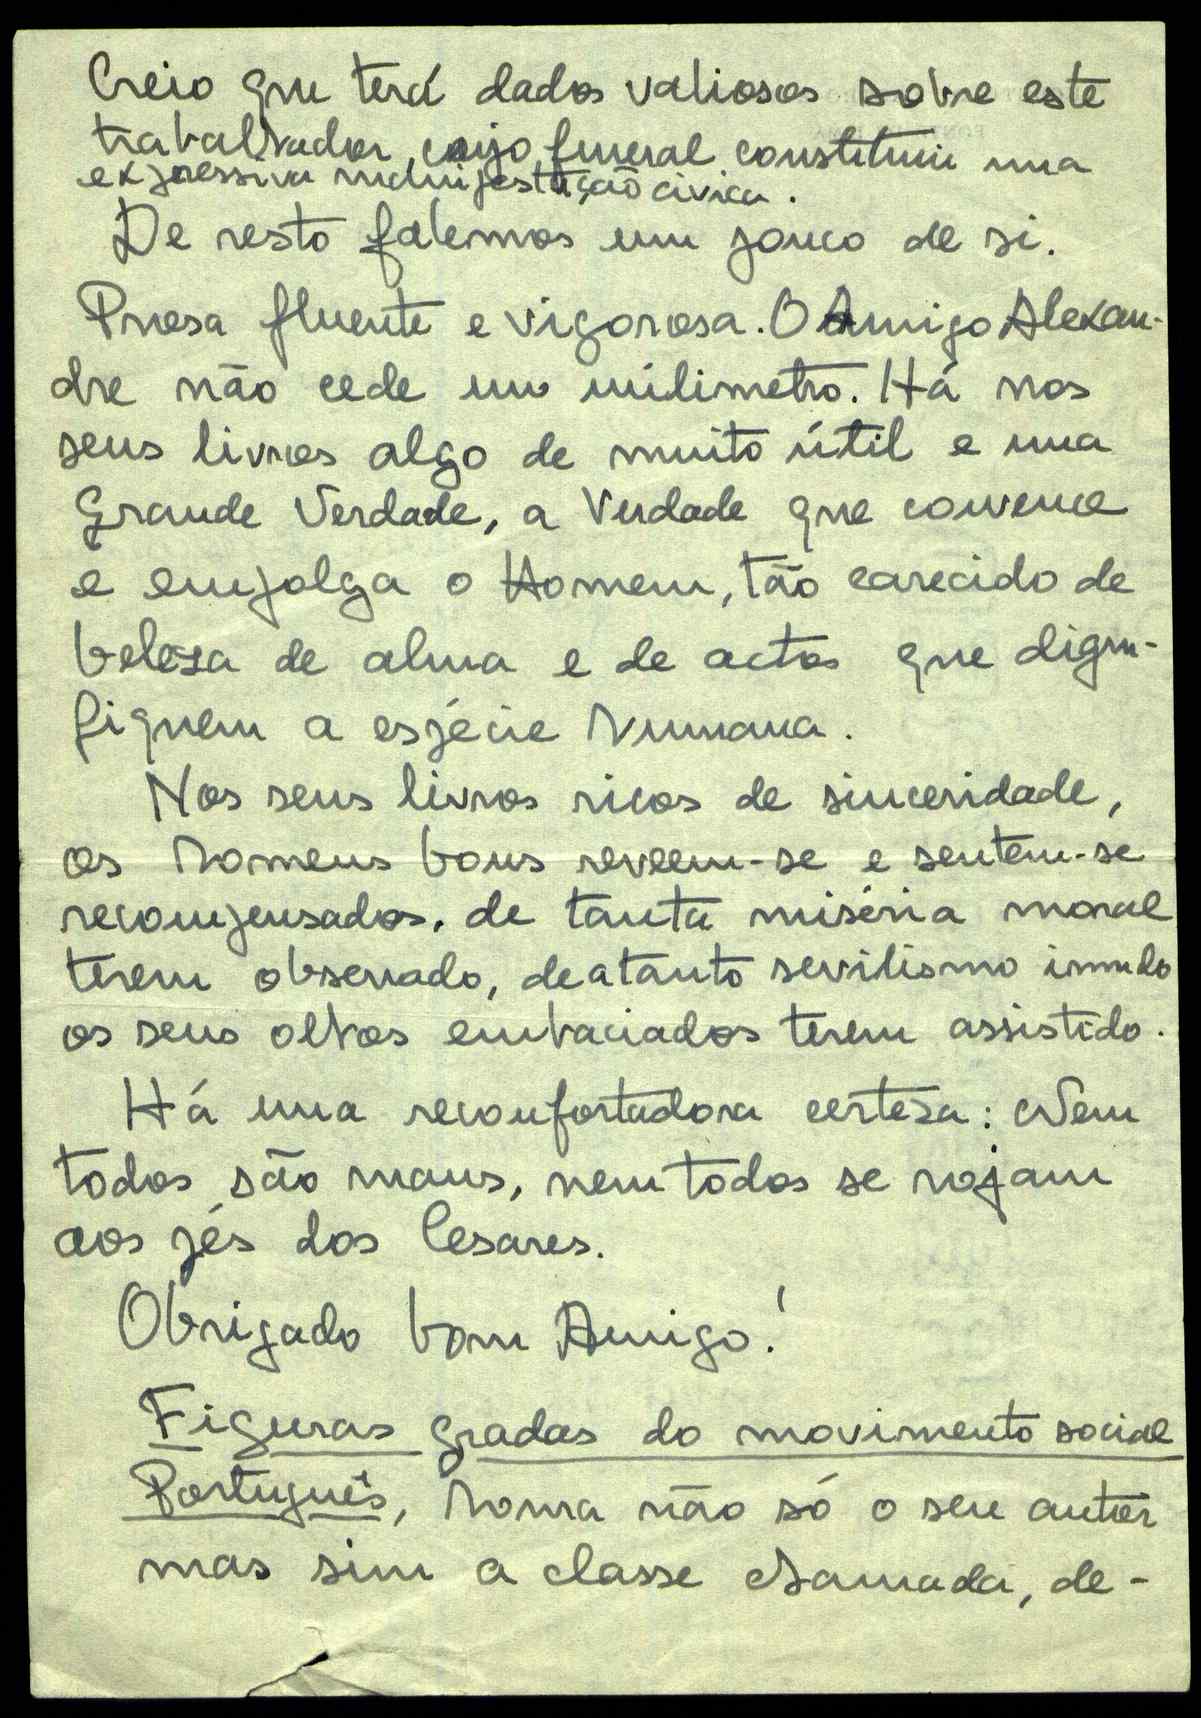 Creio que terá dados valiosos sobre este
trabalhador, cujo funeral constituiu uma
expressiva manifestação cívica.
De resto falemos um pouco de si.
Prosa fluente e vigorosa. O Amigo Alexan-
dre não cede um milimetro. Há nos
seus livros algo de muito útil e uma
Grande Verdade, a Verdade que convence
e empolga o Homem, tão carecido de
beleza de alma e de actos que digni-
fiquem a espécie humana.
Nos seus livros ricos de sinceridade,
os homens bons reveem-se e sentem-se
recompensados, de tanta miséria moral
terem observado, de a tanto servilismo imundo
os seus olhos embaciados terem assistido.
Há uma reconfortadora certeza: Nem
todos são maus, nem todos se rojam
aos pés dos Cesares.
Obrigado bom Amigo!
Figuras gradas do movimento social
Português, honra não só o seu autor
mas sim a classe chamada, de-